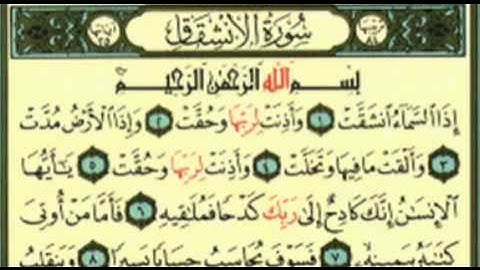 سُورَةُ الْاِنْشِقَاقِ
بِسْمِ اللَّهِ الرَّحْمَٰنِ الرَّحِيمِ
إِذَا السَّمَاءُ انْشَقَّتْ ١ وَأَذِنَتْ لِرَبِّهَا وَحُقَّتْ ٢ وَإِذَا الْأَرْضُ مُدَّتْ
٣ وَأَلْقَتْ مَا فِيهَا وَتَخَلَّتْ ٤ وَأَذِنَتْ لِرَبِّهَا وَحُقَّتْ ٥ يَا أَيُّهَا
الْإِنْسَانُ إِنَّكَ كَادِحٌ إِلَىٰ رَبِّكَ كَدْحًا فَمُلَاقِيهِ ٦ فَأَمَّا مَنْ أُوتِيَ
كِتَابَهُ بِيَمِينِهِ ٧ فَسَوْفَ يُحَاسَبُ حِسَابًا يَسِيرًا ٨ وَيَنْقَلِبُ